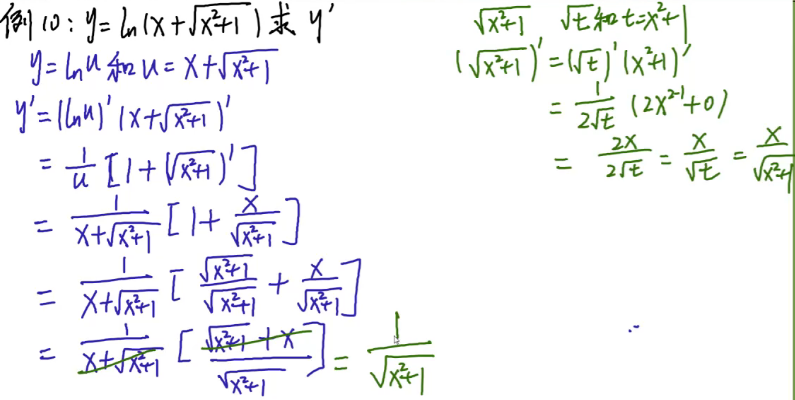 例10：y=ln(x+√(x²+1))求 y'
y=lnu 和 u=x+√(x²+1)
y'=(lnu)'(x+√(x²+1))'
= 1/u [1+(√(x²+1))']
= 1/(x+√(x²+1)) [1+ x/√(x²+1)]
= 1/(x+√(x²+1)) [√(x²+1)/√(x²+1) + x/√(x²+1)]
= 1/(x+√(x²+1)) [(√(x²+1)+x)/√(x²+1)] = 1/√(x²+1)
√(x²+1) √t 和 t=x²+1
(√(x²+1))'=(√t)'(x²+1)'
= 1/(2√t) (2x²⁻¹+0)
= 2x/(2√t) = x/√t = x/√(x²+1)